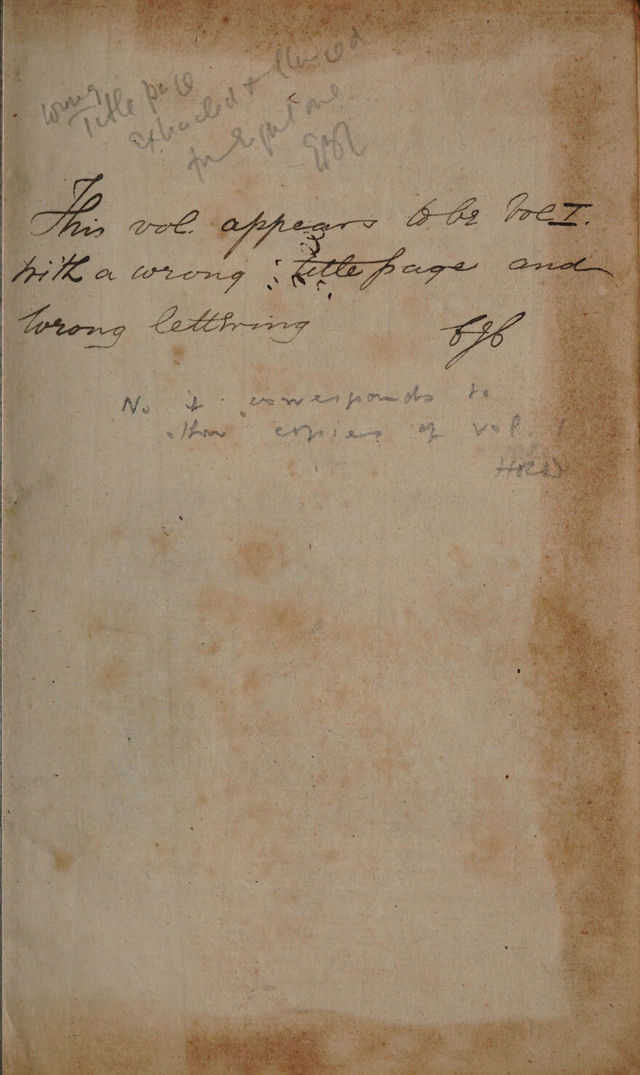 wrong
Title page
extracted +
for right one
This vol. appears to be Vol I.
with a wrong title page and
wrong lettering
No it corresponds to
other copies of vol. 1